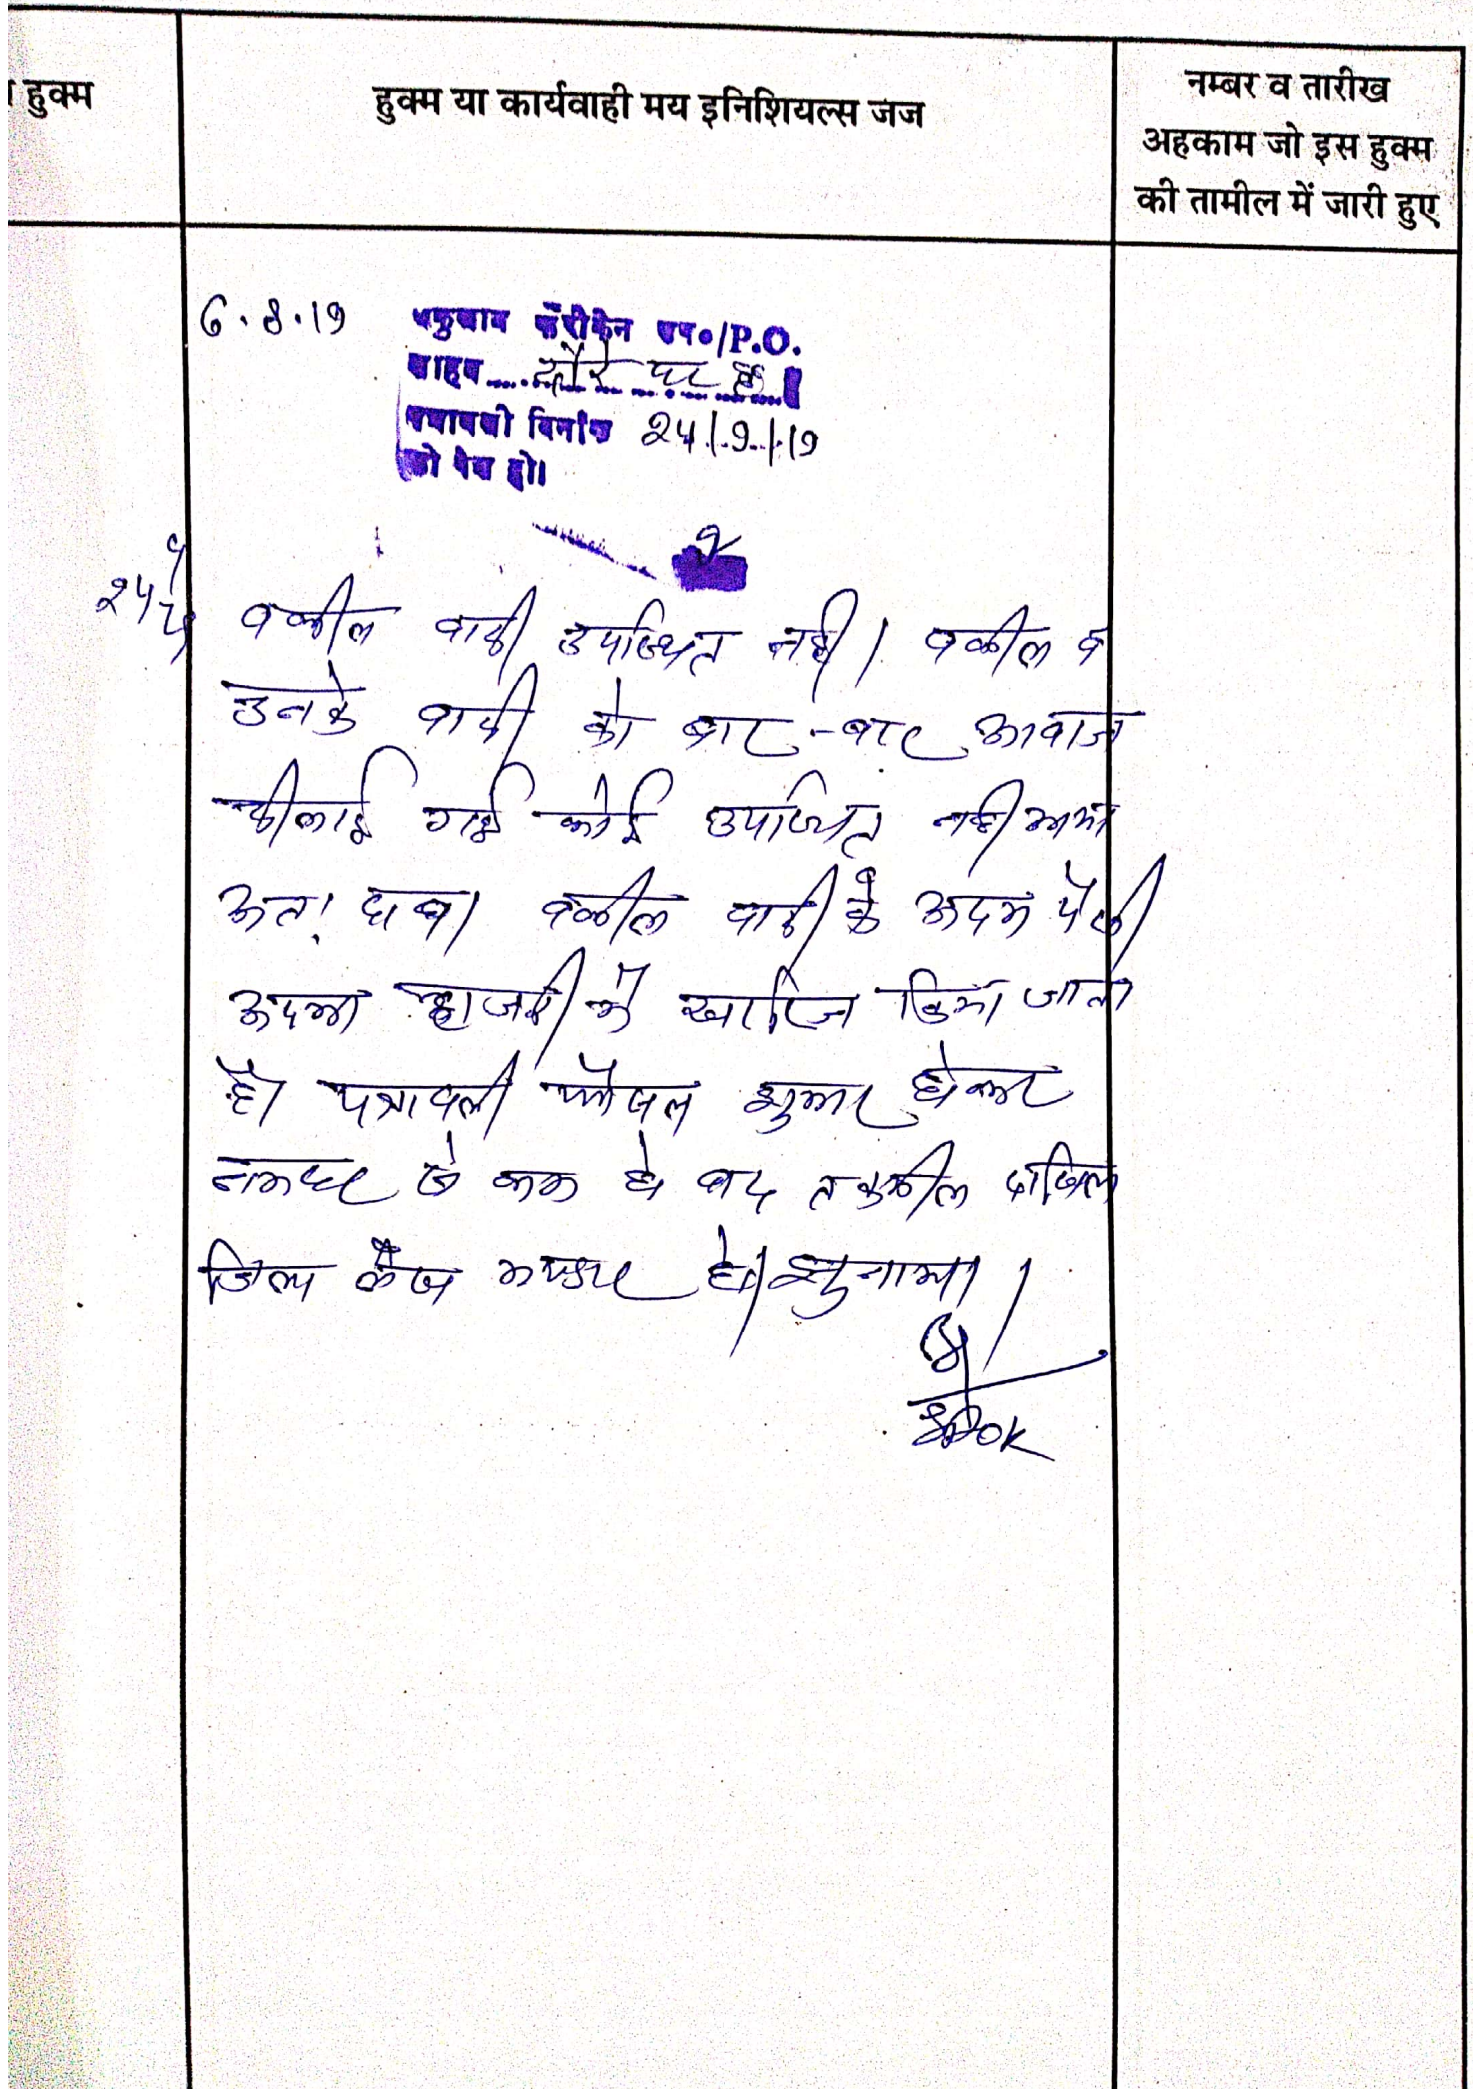 हुक्म
हुक्म या कार्यवाही मय इनिशियल्स जज
नम्बर व तारीख
अहकाम जो इस हुक्म
की तामील में जारी हुए
6.8.19
फरीकेन /P.O.
साहब दौरे पर है
पत्रावली दिनांक 24/9/19
को पेश हो।
24/9
वकील वादी उपस्थित नही। वकील व
उनके वादी को बार-बार आवाज
दीलाई गई कोई उपस्थित नही आया
अतः दावा वकील वादी के अदम पैरवी
अदम हाजरी में खारिज किया जाता
है। पत्रावली फैसल शुमार होकर
नम्बर से कम हो बाद तकमील दाखिल
जिला लेखा भण्डार हो। सुनाया।